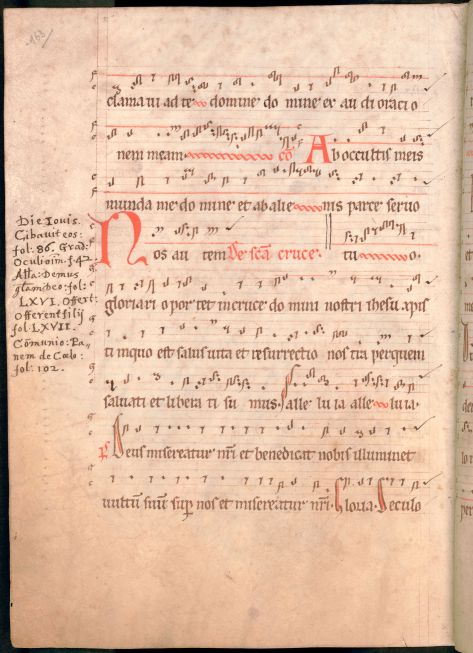 163
clama vi ad te domine do mine ex au di oracio
nem meam. cō Ab occultis meis
munda me do mine et ab alie nis parce servo
Nos au tem De scā cruce. tu o.
gloriari o por tet in cruce do mini nostri ihesu xpis
ti in quo est salus vita et resurrectio nos tra per quem
salvati et libera ti su mus. alle lu ia alle lu ia.
Deus misereatur nr̄i et benedicat nobis illuminet
vultū suū sup nos et misereatur nr̄i. Gloria. Seculo
Die Iouis.
Cibauit eos:
fol. 86. Grad:
Oculi oīm: f. 42
Alla: Demus
fol:
LXVI. Offert:
Offerent filij
fol. LXVII.
Cōmunio: Pa,,
nem de Cœlo:
fol: 102.